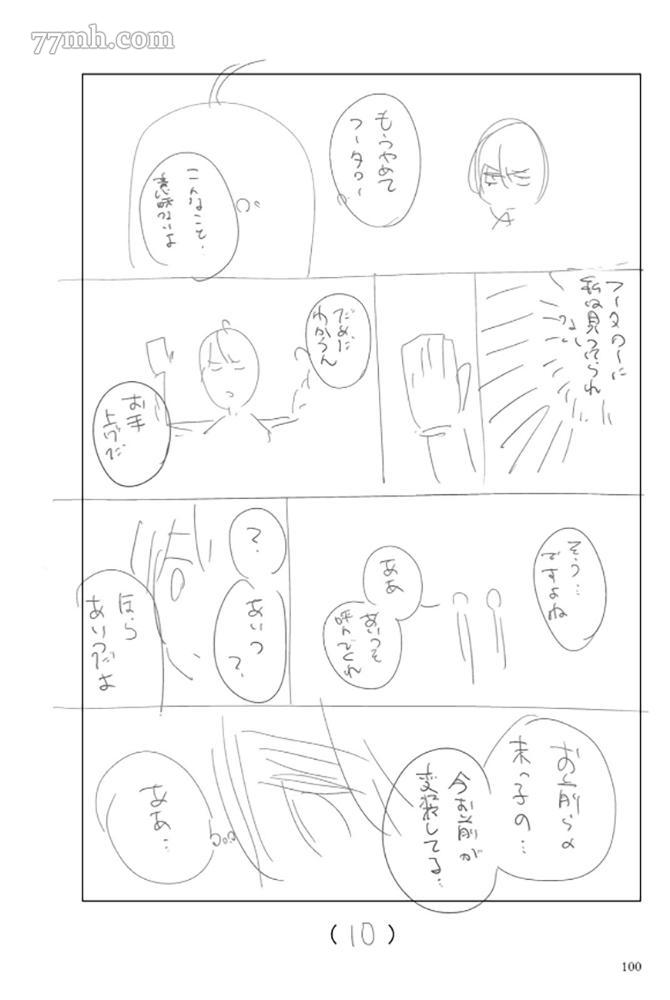 77mh.com
もうやめて
フータロー
こんなこと‥
意味ないよ
フータローに
私は見つけられ
ない
だめだ
わからん
お手
上げだ
そう…
ですよね
ああ
あいつを
呼んでくれ
?
あいつ
?
ほら
あいつだよ
お前らの
末っ子の…
今お前が
変装してる…
ああ…
(10)
100